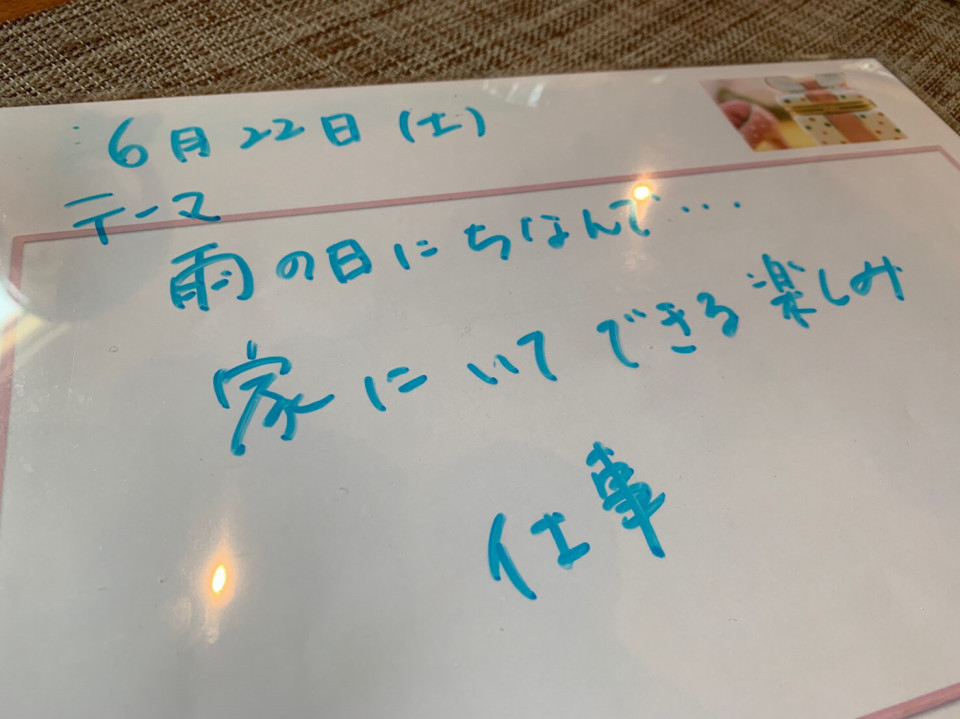 6月22日(土)
テーマ
雨の日にちなんで...
家にいてできる楽しみ
仕事